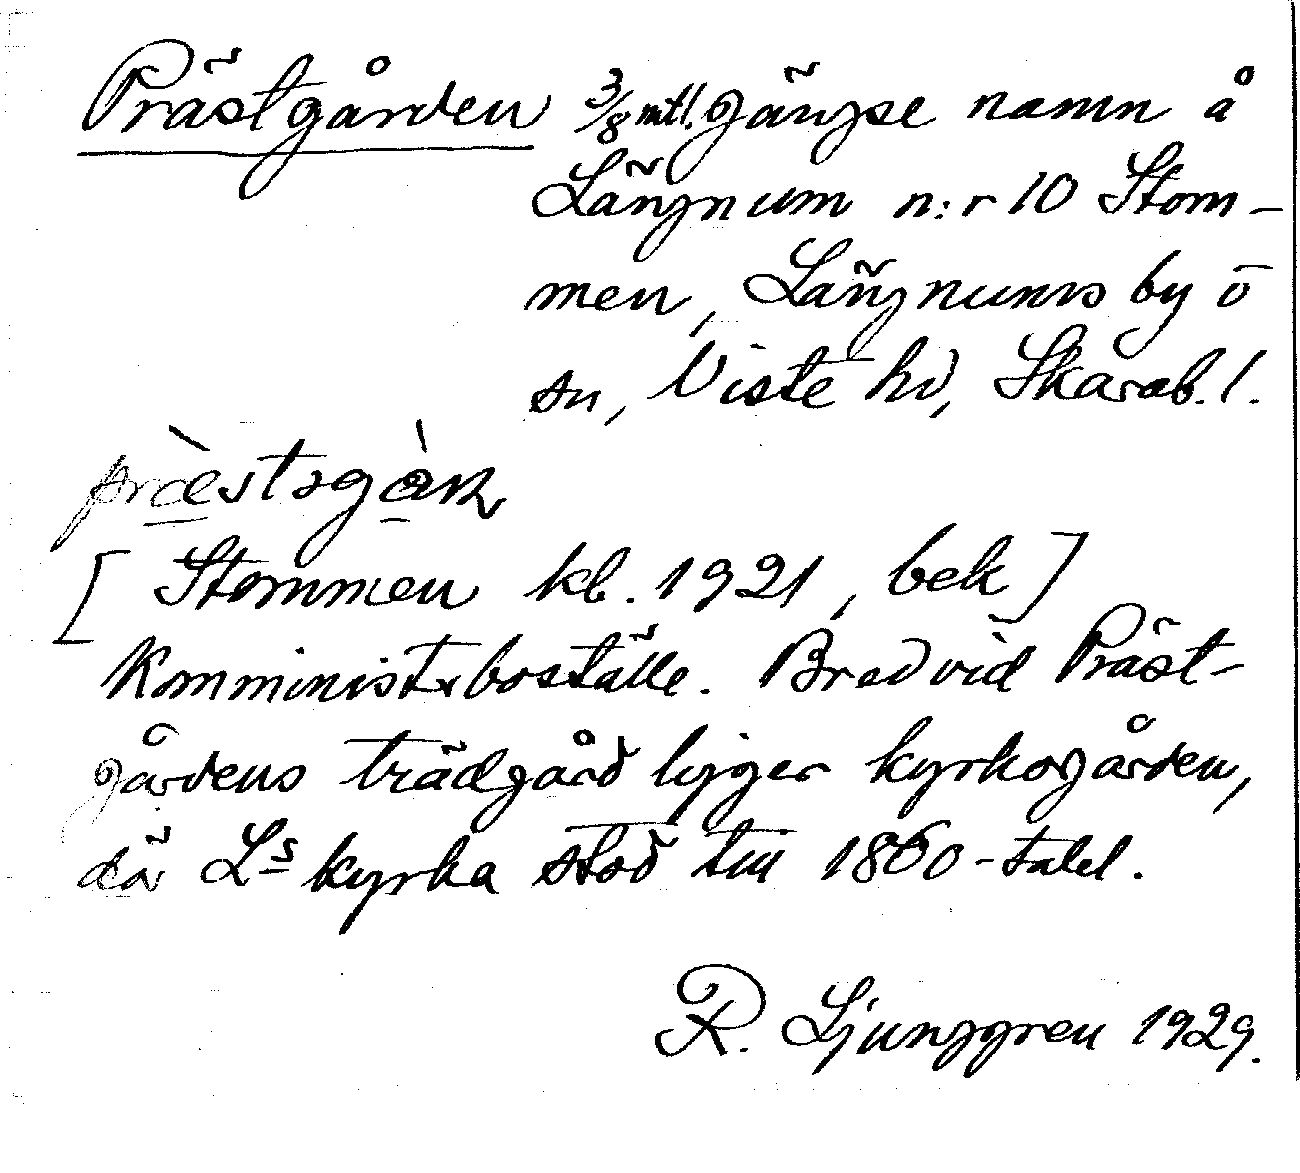 Prästgården 3/8 mtl. gängse namn å
Längnum n:r 10 Stom-
men, Längnums by o
sn, Viste hd, Skarab. l.
præstəgàɳ
[Stommen kb. 1921, bek]
Komministersboställe. Bredvid Präst-
gårdens trädgård ligger kyrkogården,
där Ls kyrka stod till 1860-talet.
R. Ljunggren 1929.